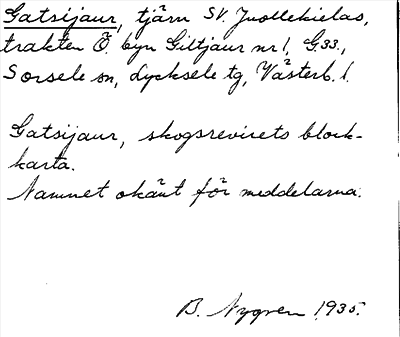 Gatsijaur, tjärn SV. Juollekielas,
trakten Ö. byn Giltjaur nr 1, G33,
Sorsele sn, Lycksele tg, Västerb. l.
Gatsijaur, skogsrevirets block-
karta.
Namnet okänt för meddelarna.
B. Nygren 1935.